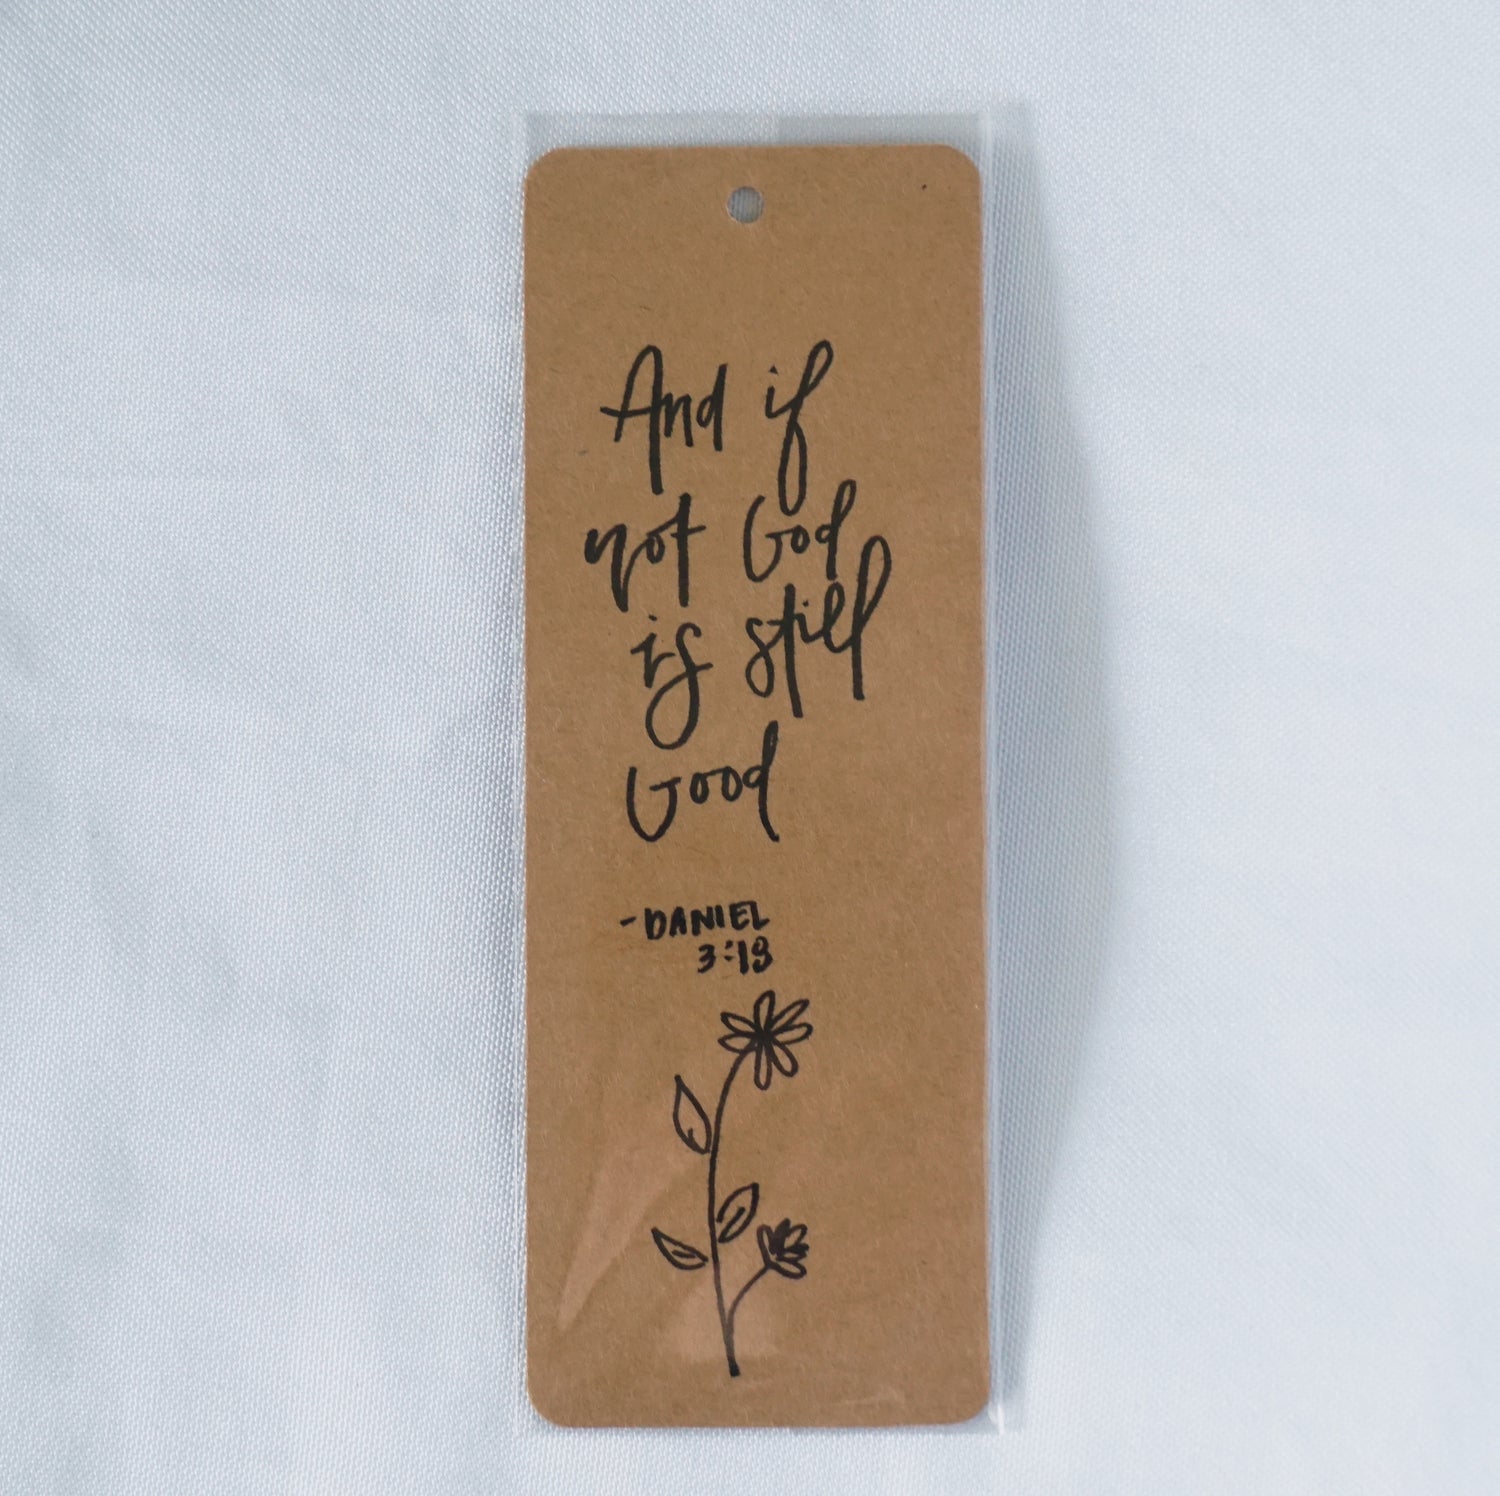 And if
not God
is still
Good
-DANIEL
3:18